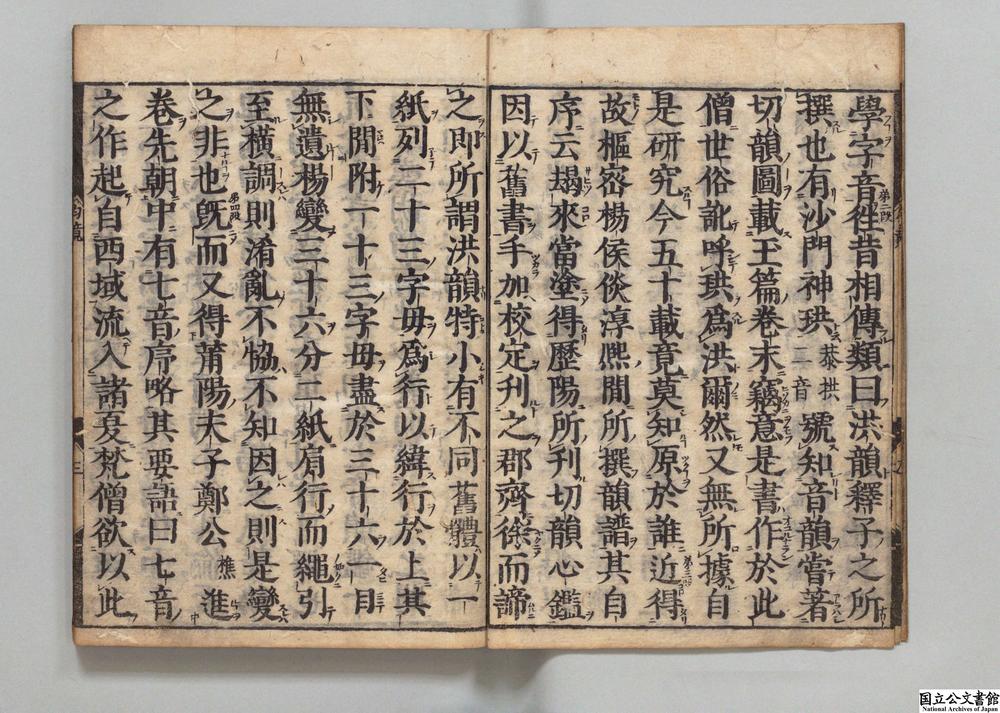 學字音徃昔相傳類曰洪韻釋子之所
撰也有沙門神珙恭拱二音號知音韻嘗著
切韻圖載王篇卷末竊意是書作於此
僧世俗訛呼珙爲洪爾然又無所據自
是研究今五十載竟莫知原於誰近得
故樞宻楊侯倓淳熈閒所撰韻譜其自
序云朅來當塗得歷陽所刊切韻心鑑
因以舊書手加校定刊之郡齊徐而諦
之即所謂洪韻特小有不同舊體以一
紙列二十三字毋爲行以緯行於上其
下閒附一十三字毋盡於三十六一目
無遺楊變三十六分二紙肩行而繩引
至横調則淆亂不恊不知因之則是變
之非也旣而又得莆陽夫子鄭公樵進
卷先朝中有七音序略其要語曰七音
之作起自西域流入諸夏梵僧欲以此
第二段
第三段
第四段
韵鏡
三
国立公文書館
National Archives of Japan